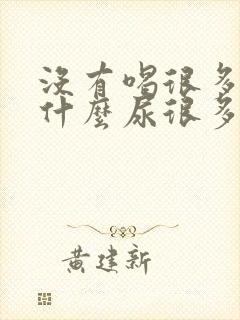 沒有喝很多
什麼尿很多
黃建新